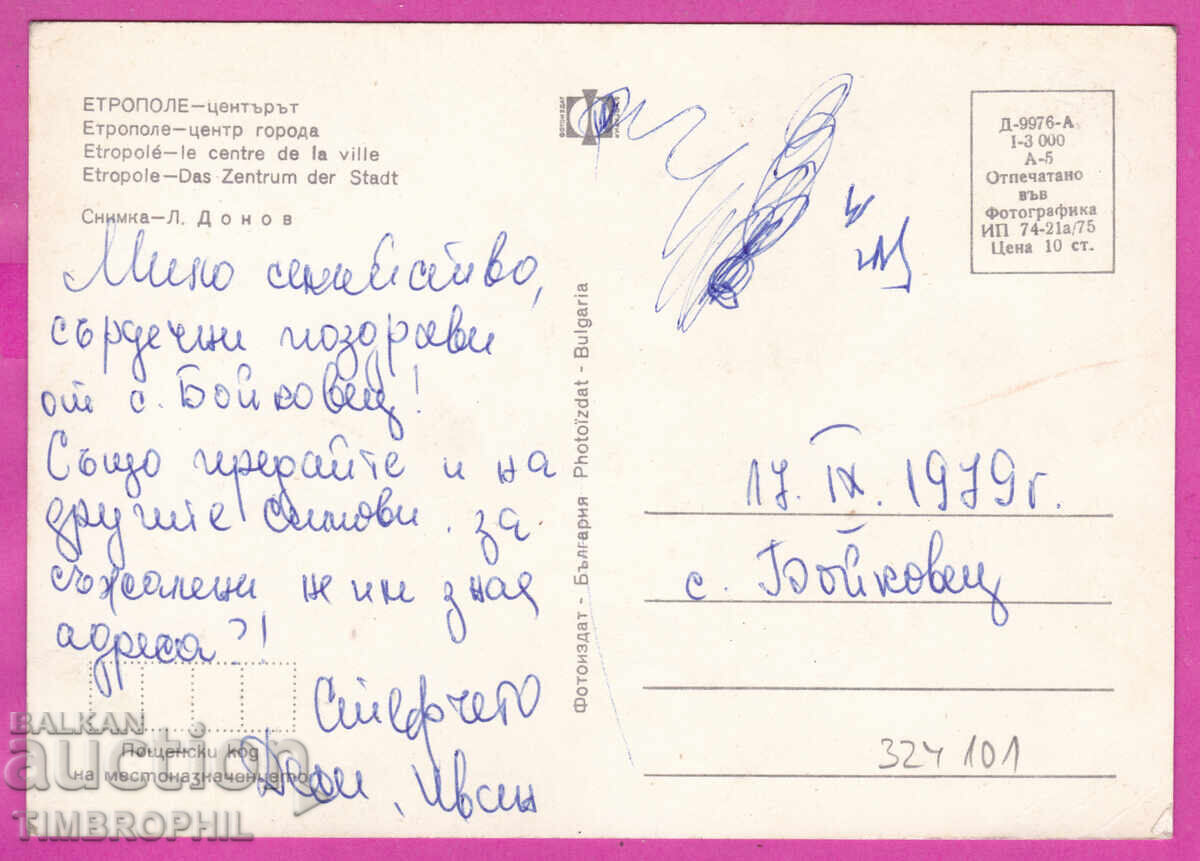 ЕТРОПОЛЕ—центърът
Етрополе—центр города
Etropolé—le centre de la ville
Etropole—Das Zentrum der Stadt
Снимка—Л. Донов
Мило семейство,
сърдечни поздрави
от с. Бойковец!
Също предайте и на
другите за
съжаление не им зная
адреса?!
Стефчето
Иван
Пощенски код
на местоназначението
BALKAN
auction
TIMBROPHIL
ФОТОИЗДАТ
Фотоиздат - България Photoïzdat - Bulgaria
Д-9976-А
I-3 000
А-5
Отпечатано
във
Фотографика
ИП 74-21а/75
Цена 10 ст.
17. IX. 1979 г.
с. Бойковец
324101